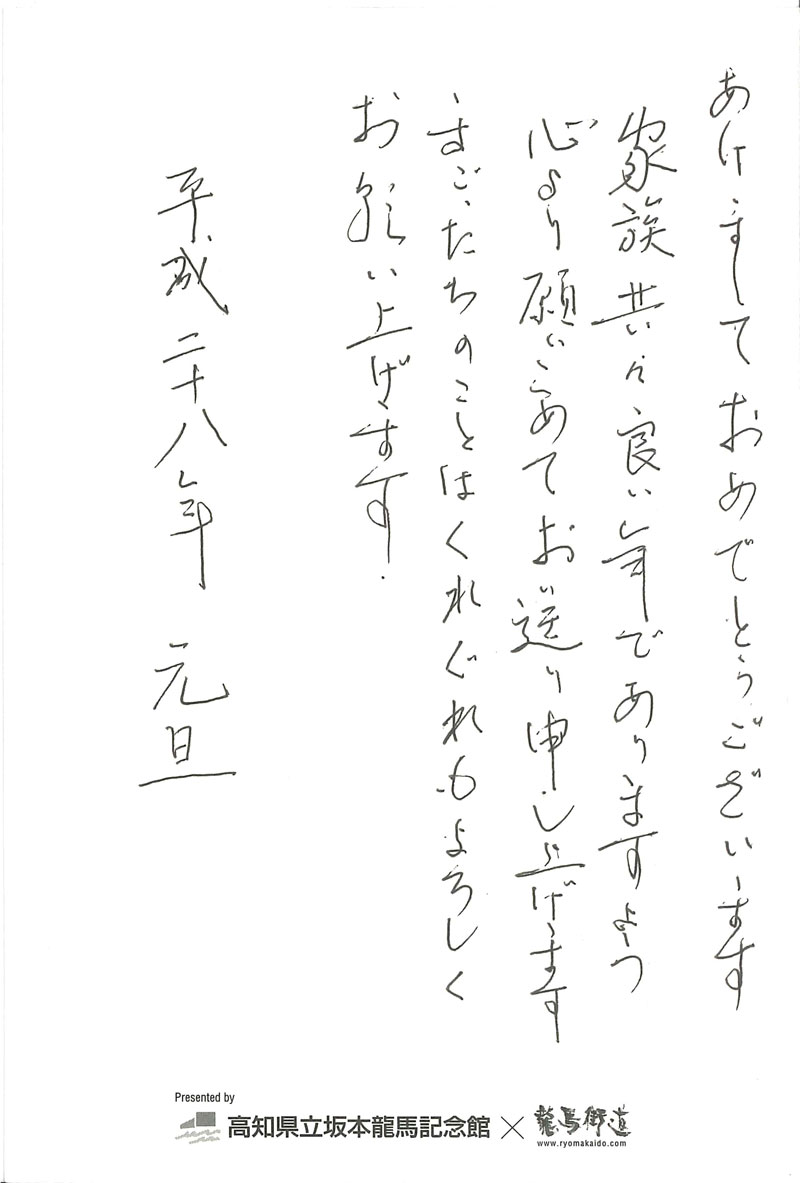 あけましておめでとうございます
家族共々良い年でありますよう
心より願いこめてお送り申し上げます
まごたちのことはくれぐれもよろしく
お願い上げます.
平成二十八年 元旦
Presented by
高知県立坂本龍馬記念館×龍馬街道
www.ryomakaido.com